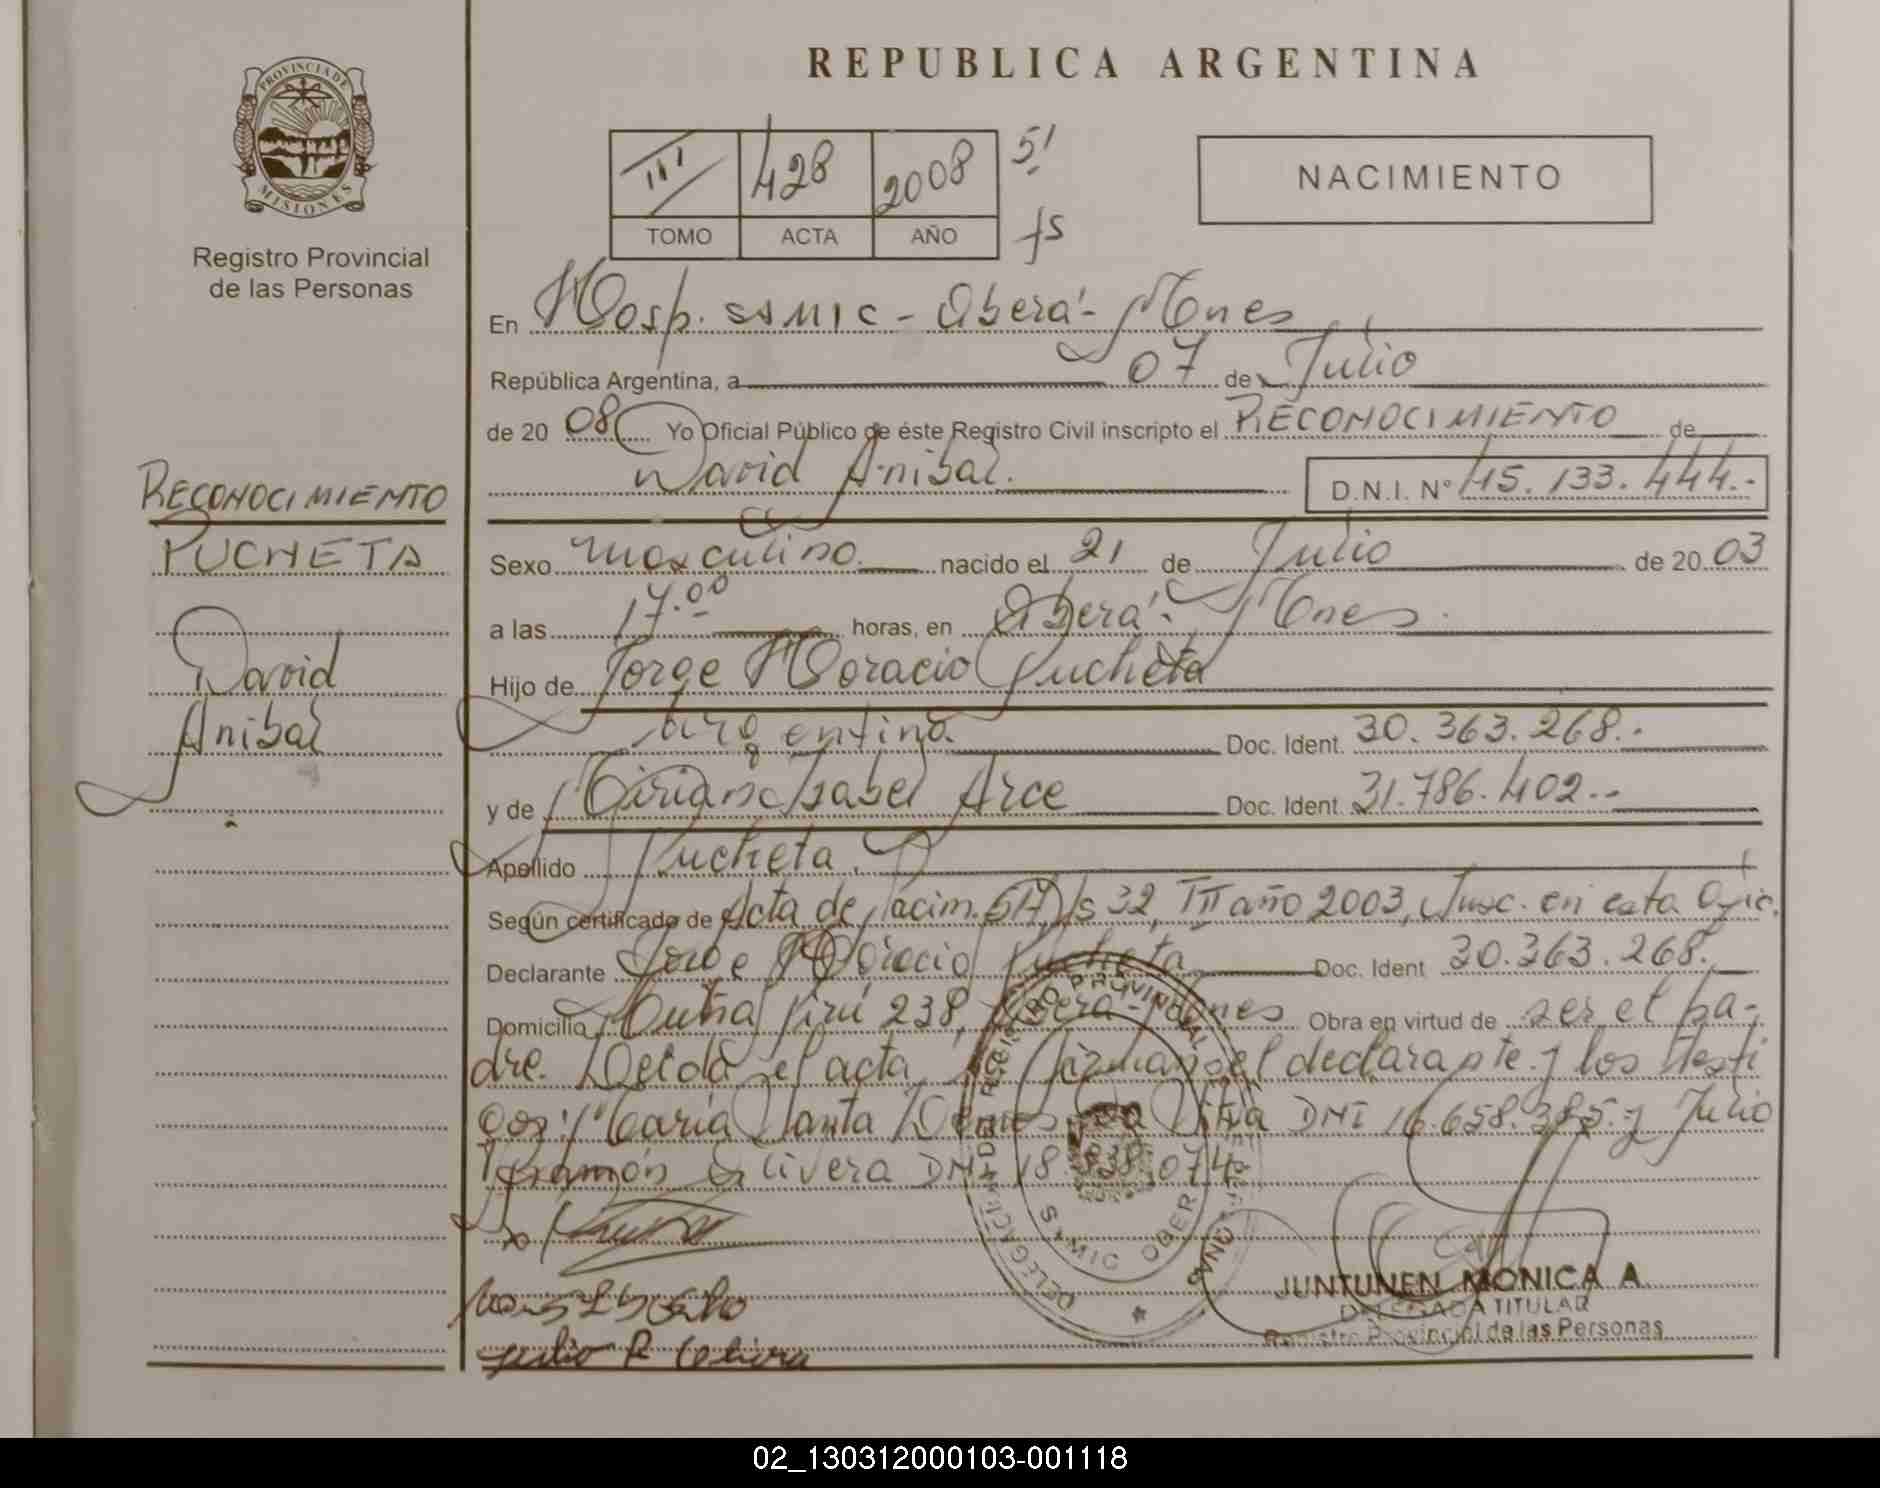 PROVINCIA DE
MISIONES
Registro Provincial
de las Personas
RECONOCIMIENTO
PUCHETA
David
Anibal
REPUBLICA ARGENTINA
III 428 2008 51
TOMO ACTA AÑO fs
NACIMIENTO
En Hosp. SAMIC - Oberá - Mnes
República Argentina, a 07 de Julio
de 2008 Yo Oficial Público de éste Registro Civil inscripto el RECONOCIMIENTO de
David Anibal. D.N.I. Nº 45.133.444.-
Sexo masculino nacido el 21 de Julio de 2003
a las 17.00 horas, en Oberá - Mnes.
Hijo de Jorge Horacio Pucheta
Argentina. Doc. Ident. 30.363.268.-
y de Isabel Arce Doc. Ident. 31.786.402.-
Apellido Pucheta.
Según certificado de Acta de Nacim. 517 fs 32, T III año 2003, Insc. en esta Ofic.
Declarante Jorge Horacio Pucheta Doc. Ident 30.363.268.
Domicilio 238, Oberá - Mnes Obra en virtud de ser el pa-
dre. Leída el acta, firman el declarante y los testi
gos: María Santa da Silva DNI 16.658.385 y Julio
Ramón Olivera DNI 18.838.074
Julio R Olivera
DELEGACION REGISTRO PROVINCIAL
SAMIC OBERA
JUNTUNEN MONICA A
DELEGADA TITULAR
Registro Provincial de las Personas
02_130312000103-001118